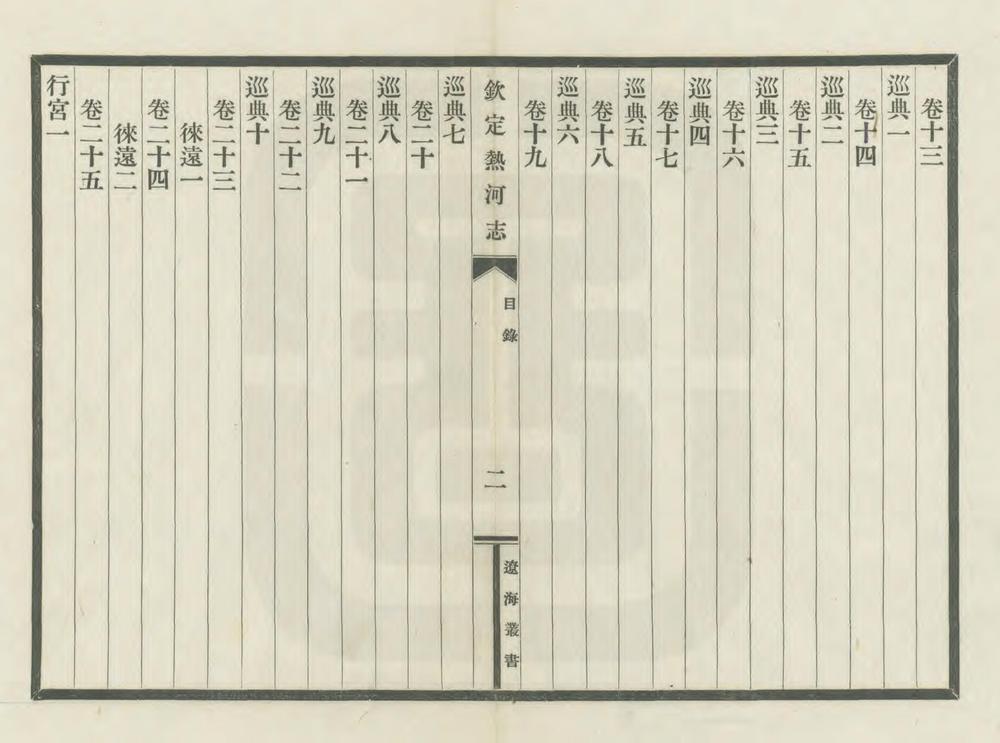 卷十三
巡典一
卷十四
巡典二
卷十五
巡典三
卷十六
巡典四
卷十七
巡典五
卷十八
巡典六
卷十九
欽定熱河志
目錄
二
遼海叢書
巡典七
卷二十
巡典八
卷二十一
巡典九
卷二十二
巡典十
卷二十三
徠遠一
卷二十四
徠遠二
卷二十五
行宮一